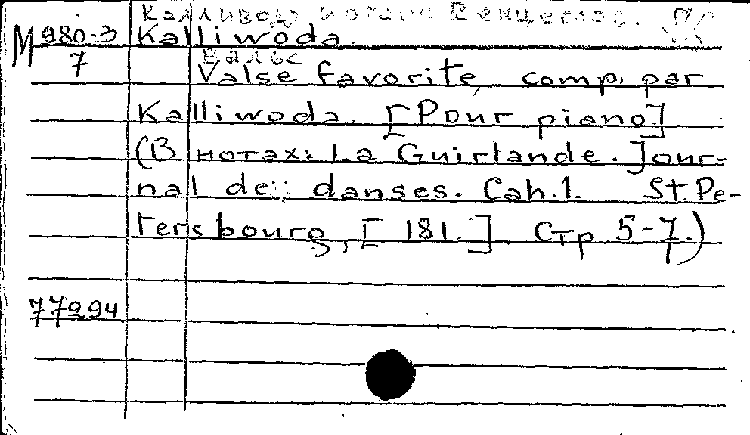 Калливода Иоганн Венцеслав.
М 980-3 Kalliwoda.
Вальс
7 Valse favorite comp. par
Kalliwoda. [Pour piano]
(В нотах: La Guirlande. Jour-
nal de danses. Cah.1. St. Pe-
tersbourg, [181.] Стр 5-7.)
77994